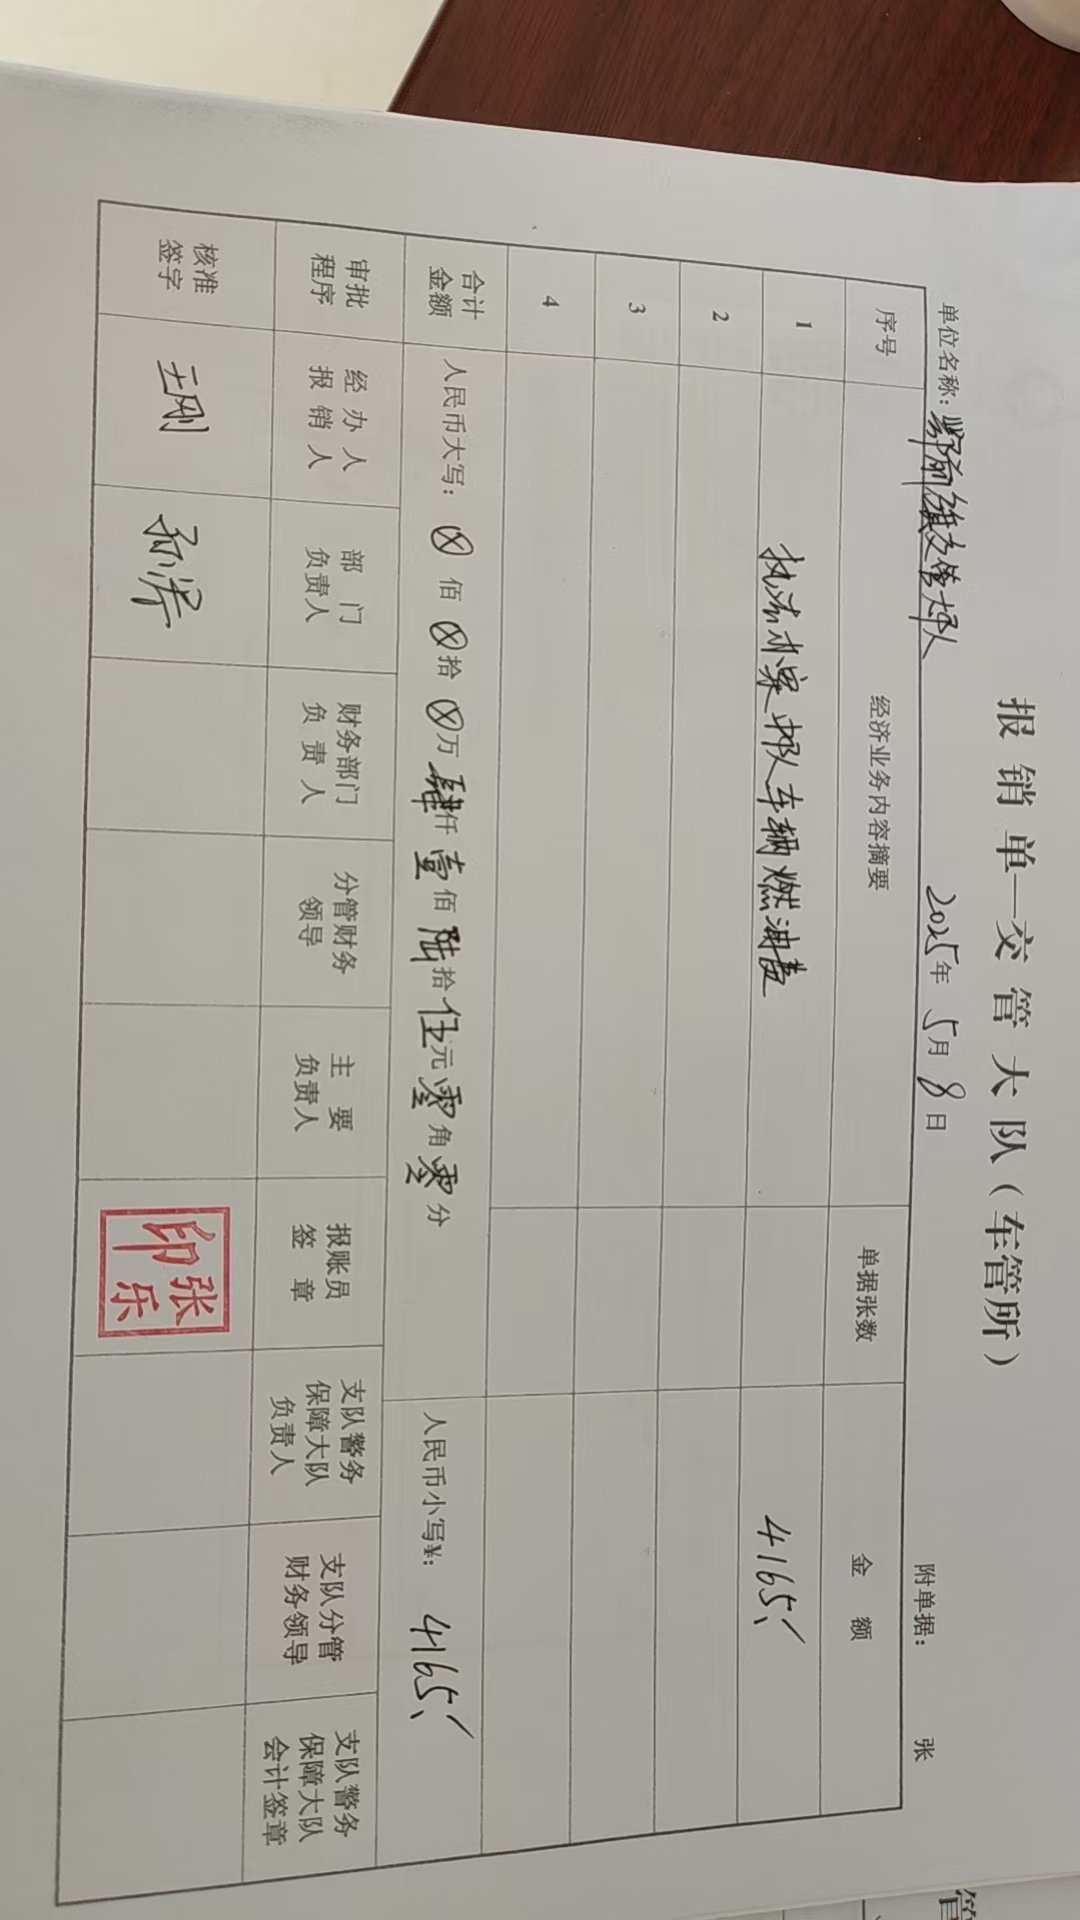 报销单—交管大队（车管所）
单位名称：鄂前旗交管大队 2025年 5月 8日 附单据： 张
序号 经济业务内容摘要 单据张数 金额
1 执法办案中队车辆燃油费 4165
2
3
4
合计金额 人民币大写：⊗佰⊗拾⊗万肆仟壹佰陆拾伍元零角零分 人民币小写¥：4165
审批程序 经办人报销人 部门负责人 财务部门负责人 分管财务领导 主要负责人 报账员签章 支队警务保障大队负责人 支队分管财务领导 支队警务保障大队会计签章
核准签字 王刚 张乐印
管